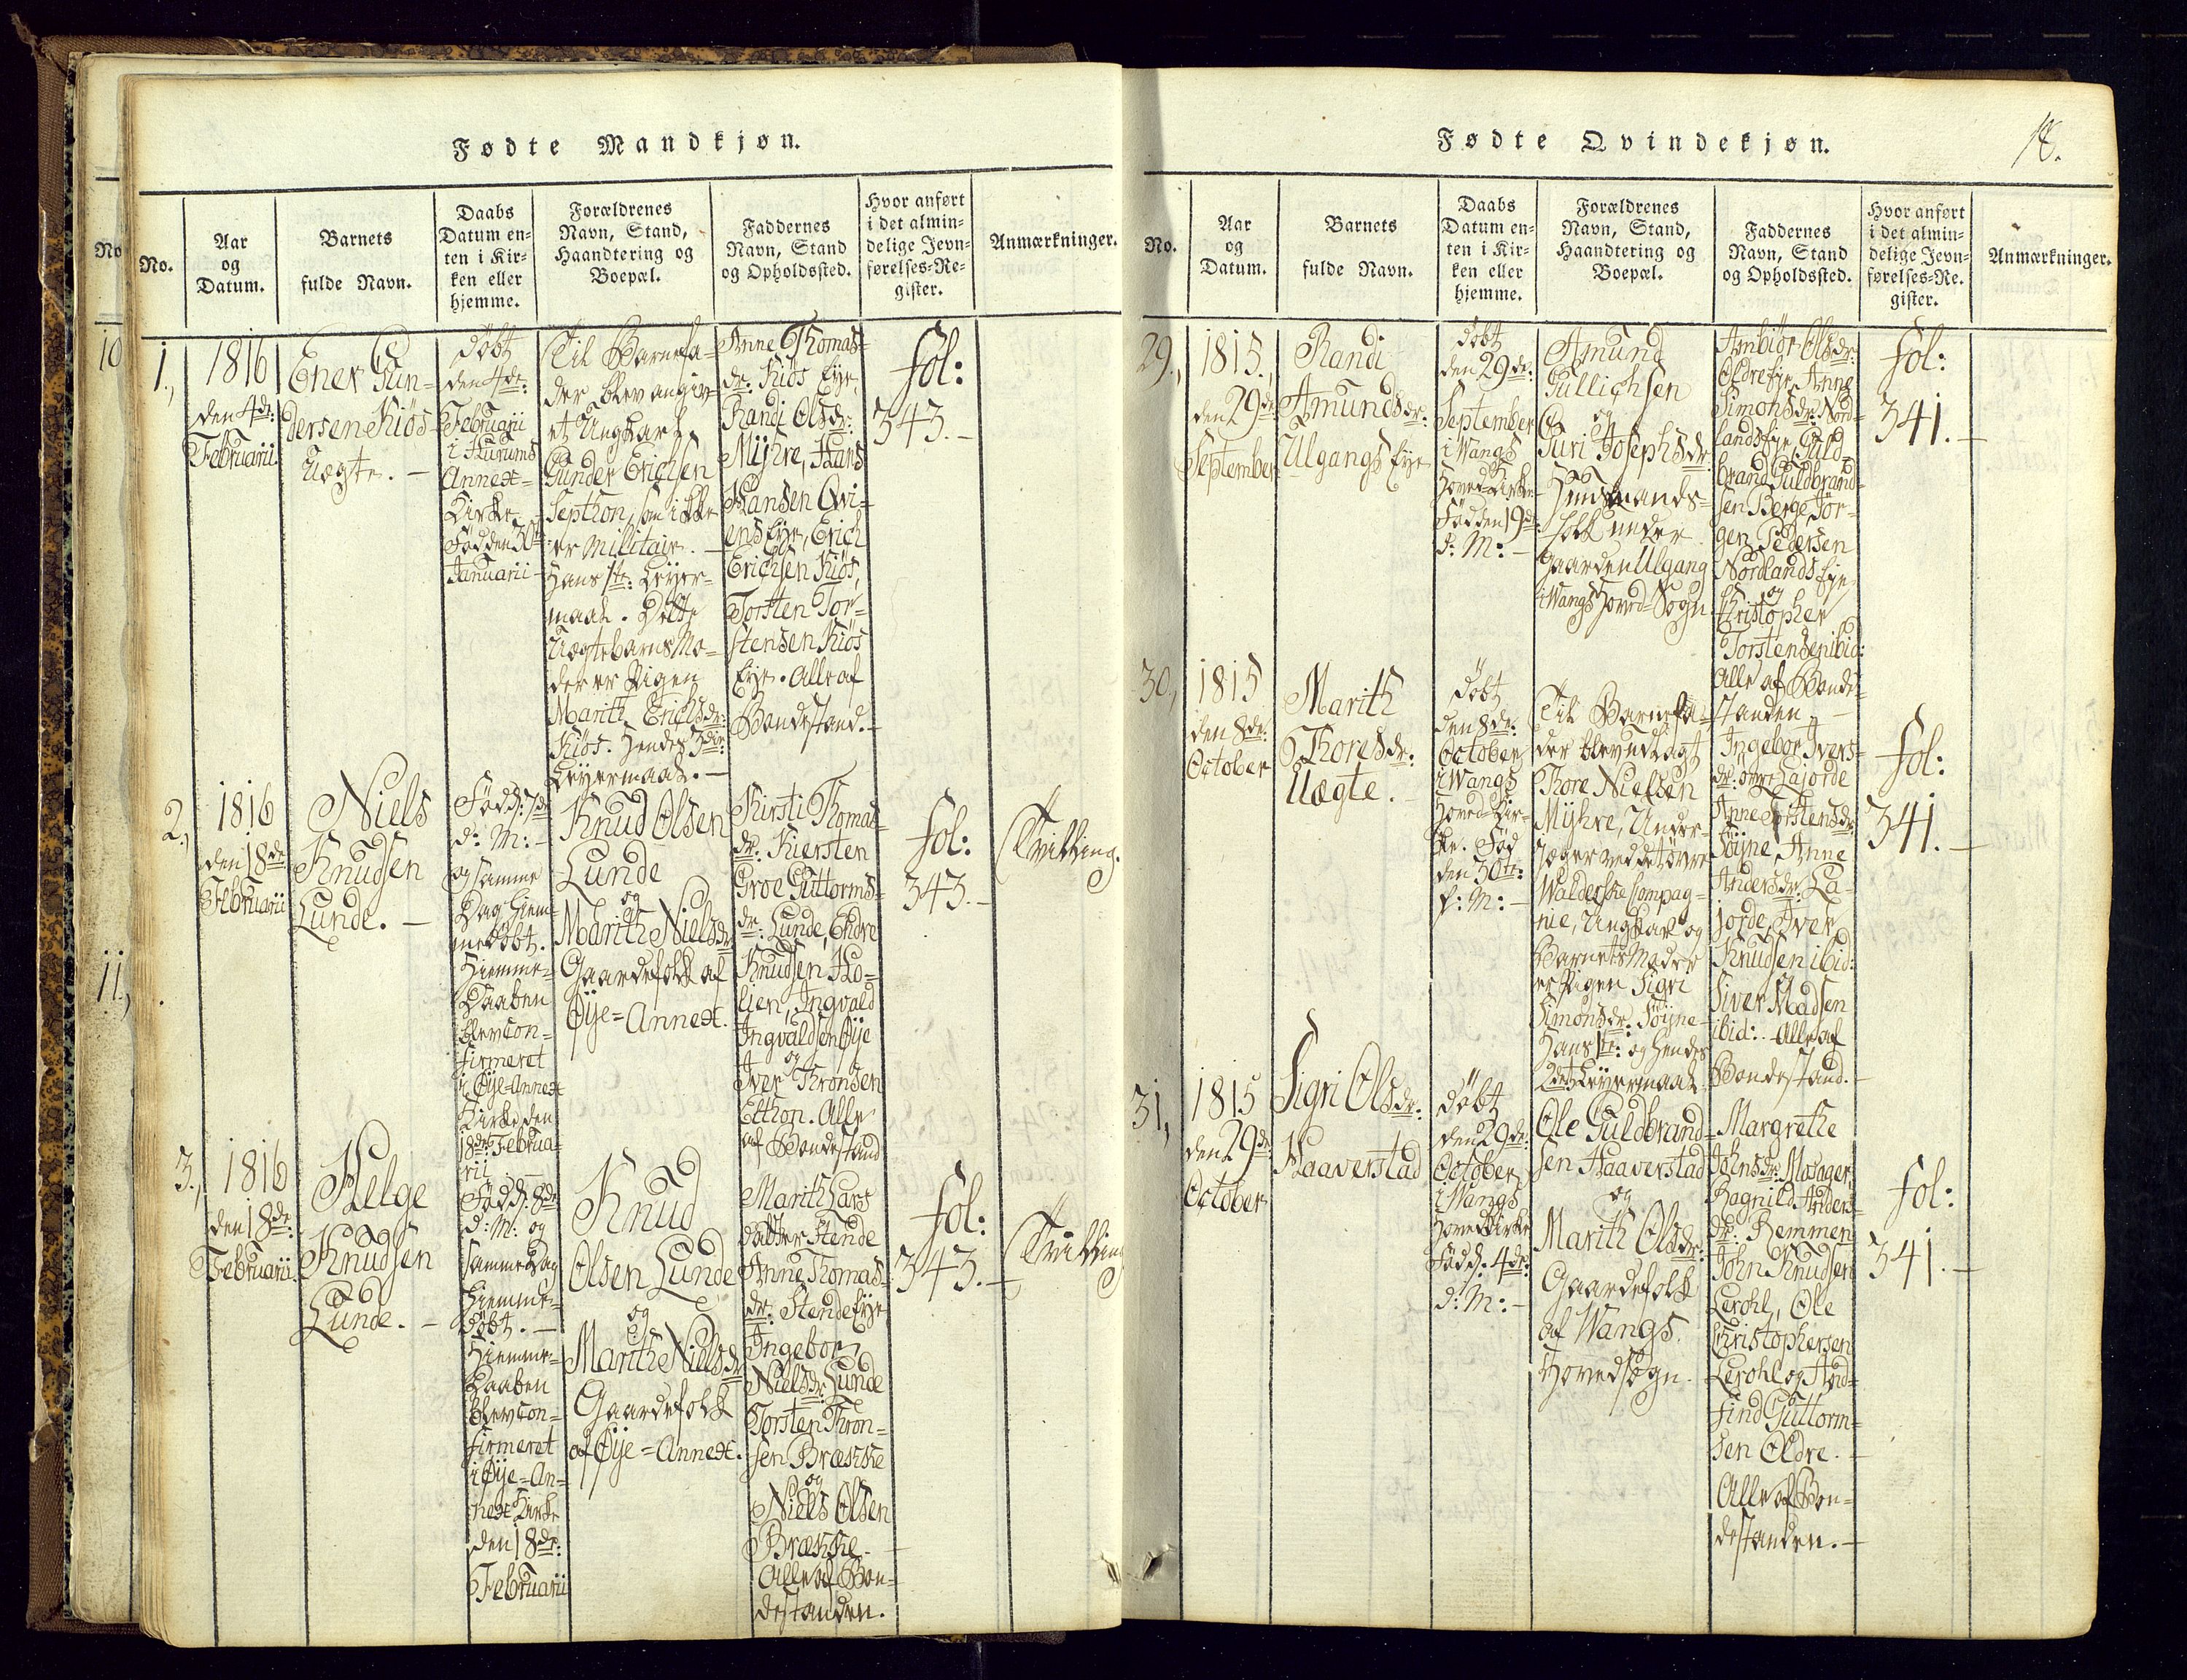 Fødte Mandkjøn.
No.
Aar
og
Datum.
Barnets
fulde Navn.
Daabs
Datum en-
ten i Kir-
ken eller
hjemme.
Forældrenes
Navn, Stand,
Haandtering og
Boepæl.
Faddernes
Navn, Stand
og Opholdssted.
Hvor anført
i det almin-
delige Jevn-
førelses-Re-
gister.
Anmærkninger.
No
10
11.,
1.,
1816
den 4de:
Februarii
Ener Gun-
dersen Kiøs
Uægte. –
Døbt
den 4de:
Februarii
i Hurums
Annex-
Kirke
Fød den 30te
Januarii –
Til Barnefa-
der blev angiv-
et Ungkarl
Gunder Erichsen
Septhon, som ikke
er Militair. –
Hans 1te: Leyer-
maal. Dette
Uægtebarns Mo-
der er Pigen
Marith Erichsdr:
Kiøs. Hendes 3die
Leyermaal. –
Anne Thomas-
dr: Kiøs Eye,
Randi Olsdr:
Myhre, Hans
Hansen Qvi-
ens Eye, Erich
Erichsen Kiøs,
Torsten Tor-
stensen Kiøs
Eye. Alle af
Bondestand. –
fol:
343. –
2.,
1816
den 18de
Februarii
Niels
Knudsen
Lunde. –
Fød d: 7de
d: M: –
og samme
Dag hiem-
medøbt.
Hiemme-
Daaben
blev con-
firmeret
i Øye-Annex
Kirke den
18de: Februa-
rii –
Knud Olsen
Lunde
og
Marith Nielsdr
Gaardefolk af
Øye-Annex.
Kirsti Thomas-
dr: Kiersten
Groe Guttorms-
dr: Lunde, Endre
Knudsen Ho-
lien, Ingvald
Ingvaldsen Øye
og
Iver Thronsen
Ethon. Alle
af Bondestand
fol:
343. –
Tvilling.
3.,
1816
den 18de:
Februarii
Helge
Knudsen
Lunde. –
Fød d: 8de
d: M: og
samme Dag
hiemme-
døbt. –
Hiemme-
Daaben
blev con-
firmeret
i Øye-An-
nex Kirke
den 18de:
Februarii
Knud
Olsen Lunde
og
Marith Nielsdr
Gaardefolk
af Øye-Annex.
Marith Lars
datter Stende
Anne Thomas-
dr: Stende Eye
Ingebor
Nielsdr: Lunde
Torsten Thron-
sen Brække
og
Niels Olsen
Brække. –
Alle af Bon-
destanden.
fol:
343. –
Tvilling
Fødte Qvindekjøn.
18.
No.
Aar
og
Datum.
Barnets
fulde Navn.
Daabs
Datum en-
ten i Kir-
ken eller
hjemme.
Forældrenes
Navn, Stand,
Haandtering og
Boepæl.
Faddernes
Navn, Stand
og Opholdssted.
Hvor anført
i det almin-
delige Jevn-
førelses-Re-
gister.
Anmærkninger.
29.,
1815.,
den 29de
September
Randi
Amundsdr:
Ulgangs Eye
døbt
den 29de:
September
i Wangs
Hoved-Kirke
Fød den 19de
d: M: –
Amund
Gullichsen
og
Guri Josephsdr
Huusmands-
folk under
Gaarden Ulgang
i Wangs Hoved-Sogn
Ambiør Olsdr:
Oldre Eye, Anne
Simonsdr: Nord-
lands Eye, Guld-
brand Guldbrand-
sen Berge, Jør-
gen Pedersen
Nordlands Eye,
og
Christopher
Torstensen ibid:
Alle af Bonde-
standen –
fol:
341. –
30.,
1815
den 8de:
October
Marith
Thoresdr:
Uægte. –
Døbt
den 8de:
October
i Wangs
Hoved-Kir-
ke. Fød
den 30te:
f: M: –
Til Barnefa-
der blev udlagt
Thore Nielsen
Myhre, Under-
jæger ved det øvre
Walderske Compag-
nie, Ungkarl og
Barnets Moder
er Pigen Sigri
Simonsdr: Søyne
Hans 1te: og hendes
2det Leyermaal.
Ingebor Ivers-
dr: øvre Lajorde
Anne Torstensdr:
Søyne, Anne
Andersdr: La-
jorde, Iver
Knudsen ibid:
Siver Madsen
ibid: – Alle af
Bondestand. –
fol:
341. –
31.,
1815
den 29de
October
Sigri Olsdr:
Haaverstad
døbt
den 29de:
October
i Wangs
Hoved Kirke
Fød d: 4de:
d: M: –
Ole Guldbrand-
sen Haaverstad
og
Marith Olsdr:
Gaardefolk
af Wangs
Hovedsogn.
Margrethe
Johnsdr:
Ragnild Anders-
dr: Remmen
John Knudsen
Lerohl, Ole
Christophersen
Lerohl og
find Guttorm-
sen Oldre. –
Alle af Bon-
destanden. –
fol:
341. –